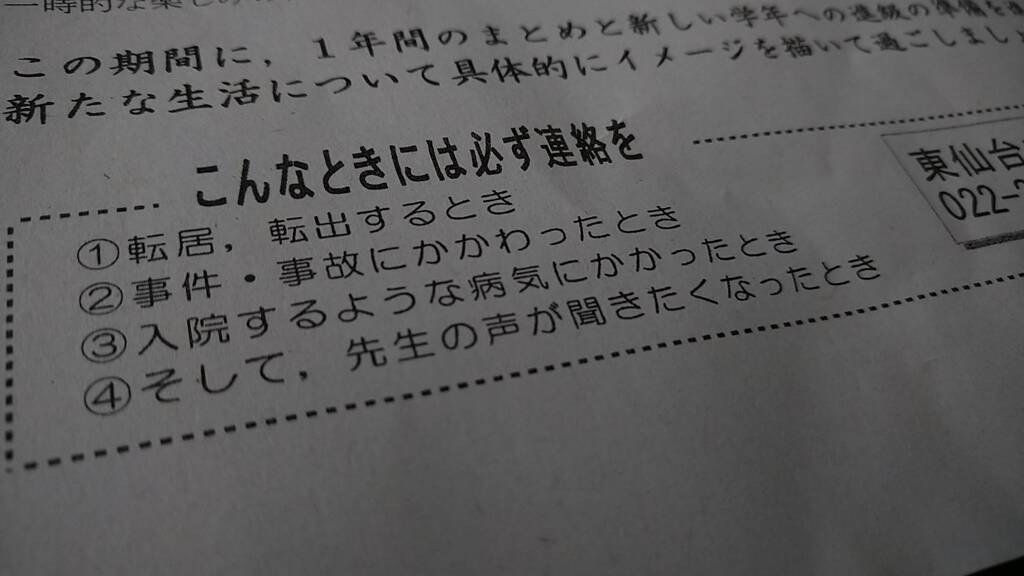 この期間に，１年間のまとめと新しい学年への進級の準備を
新たな生活について具体的にイメージを描いて過ごしまし
こんなときには必ず連絡を
①転居，転出するとき
②事件・事故にかかわったとき
③入院するような病気にかかったとき
④そして，先生の声が聞きたくなったとき
東仙台
022-